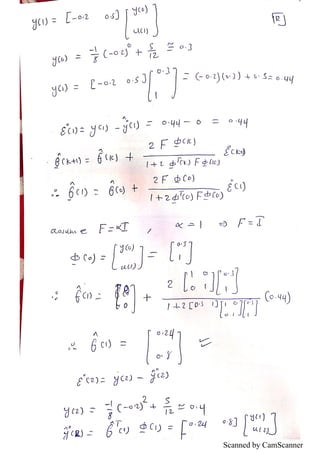 y(1) = [-0.2 0.5] [y(0) u(1)]
12
y(0) = -1/8 (-0.2)^0 + 5/12 ≅ 0.3
y(1) = [-0.2 0.5] [0.3 1] = (-0.2)(0.3) + 0.5 = 0.44
ε°(1) = y(1) - ŷ°(1) = 0.44 - 0 = 0.44
θ̂(k+1) = θ̂(k) + 2 F φ(k) / 1 + 2 φᵀ(k) F φ(k) ε°(k+1)
∴ θ̂(1) = θ̂(0) + 2 F φ(0) / 1 + 2 φᵀ(0) F φ(0) ε°(1)
assume F = αI , α = 1 ⇒ F = I
φ(0) = [y(0) u(1)] = [0.3 1]
∴ θ̂(1) = [0 0] + 2 [1 0 0 1] [0.3 1] / 1 + 2 [0.3 1] [1 0 0 1] [0.3 1] (0.44)
∴ θ̂(1) = [0.24 0.8]
ε°(2) = y(2) - ŷ°(2)
y(2) = -1/8 (-0.2)² + 5/12 ≅ 0.4
ŷ°(2) = θ̂ᵀ(1) φ(1) = [0.24 0.8] [y(1) u(2)]
Scanned by CamScanner